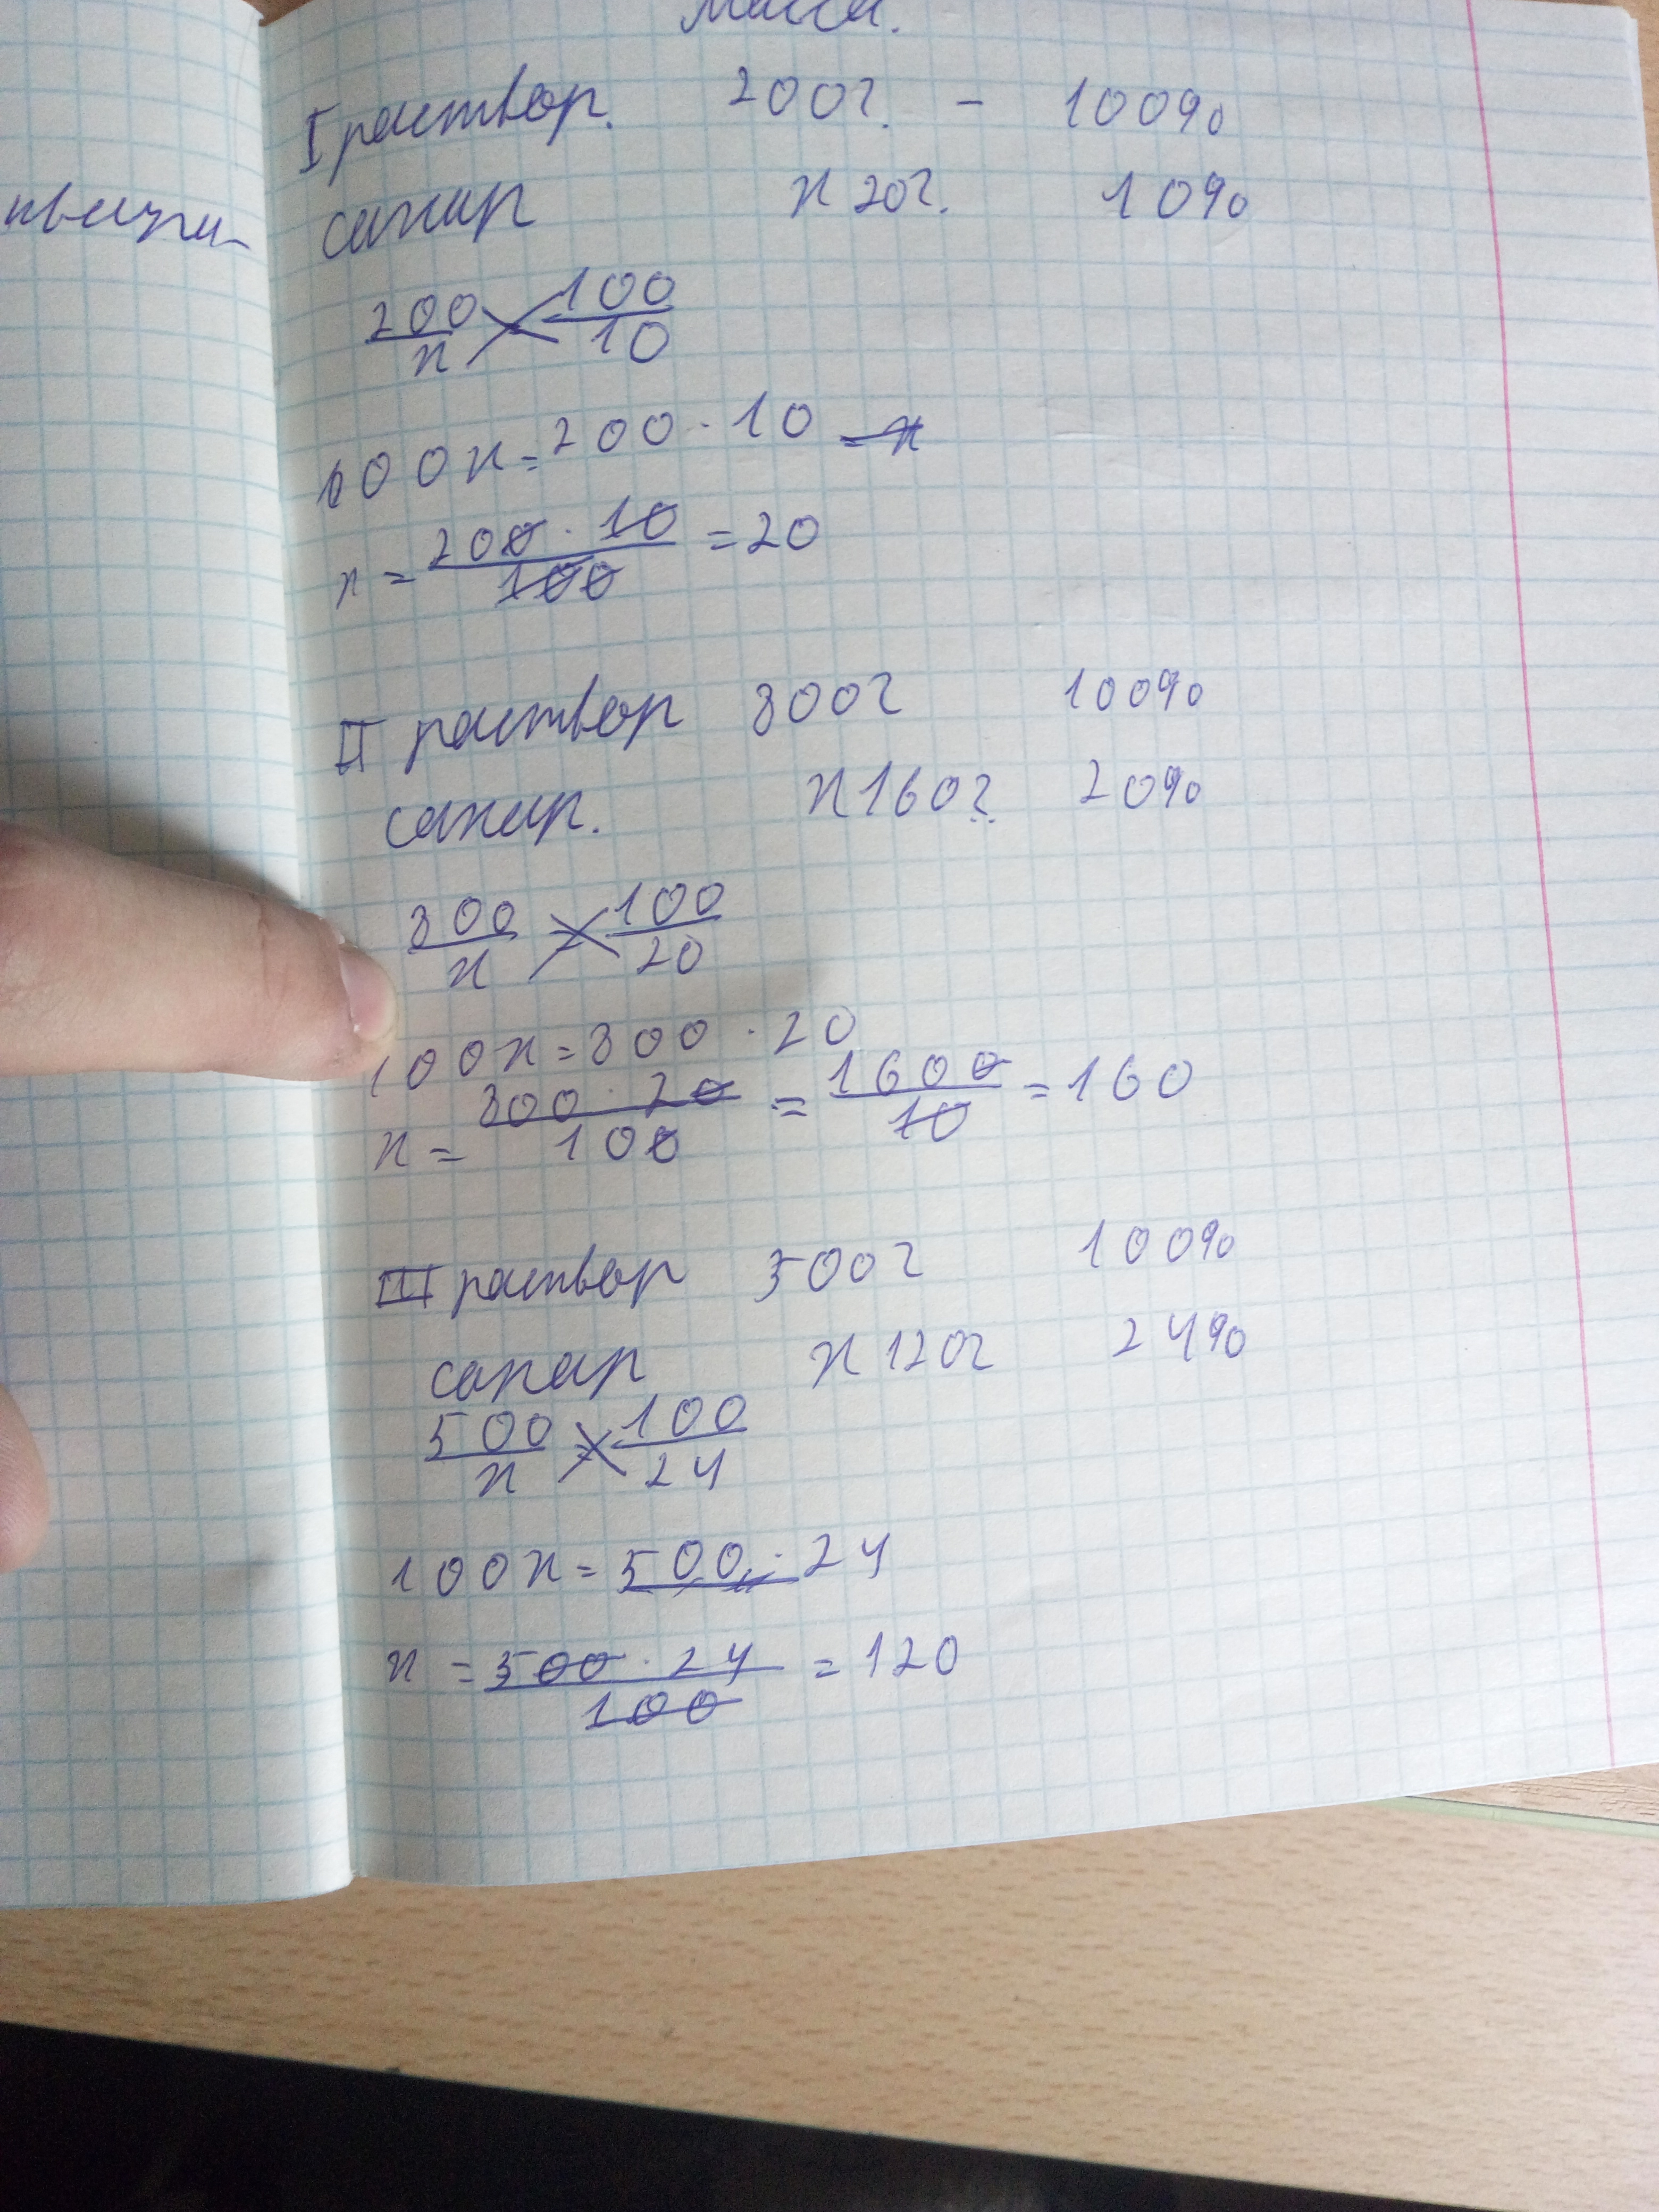 Масса.
I раствор. 200г. - 100%
сахар x 20г. 10%
200/x = 100/10
100x = 200 · 10
x = 200 · 10 / 100 = 20
II раствор 800г 100%
сахар. x 160г 20%
800/x = 100/20
100x = 800 · 20
x = 800 · 20 / 100 = 1600/10 = 160
III раствор 500г 100%
сахар x 120г 24%
500/x = 100/24
100x = 500 · 24
x = 500 · 24 / 100 = 120